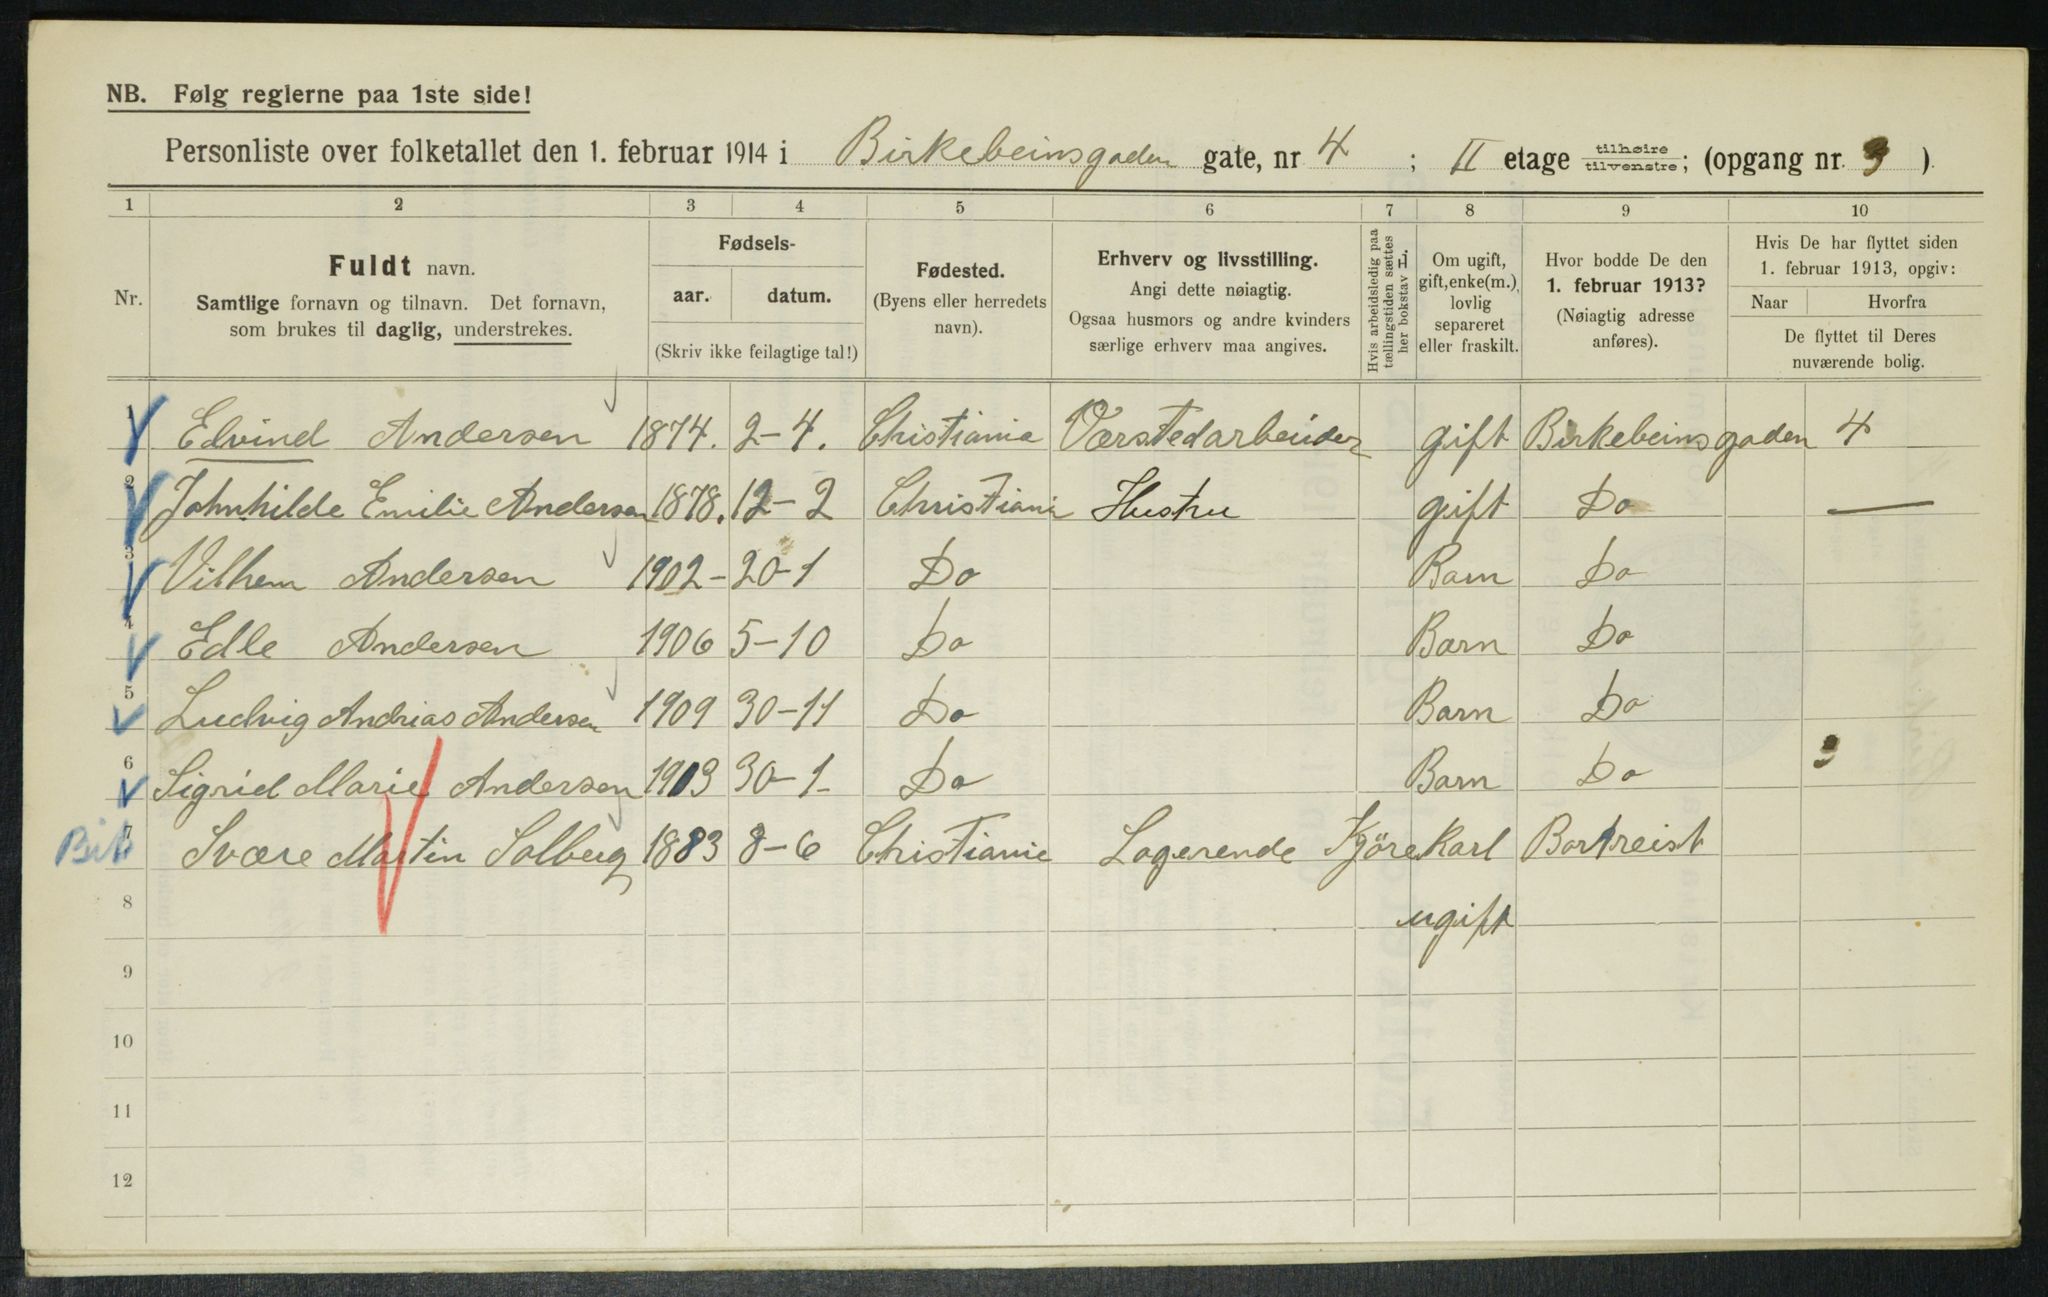 NB. Følg reglerne paa 1ste side!
Personliste over folketallet den 1. februar 1914 i Birkebeinsgaden gate, nr. 4 ; II etage tilhøire tilvenstre; (opgang nr. 3 ).
1 2 3 4 5 6 7 8 9 10
Nr.
Fuldt navn.
Samtlige fornavn og tilnavn. Det fornavn,
som brukes til daglig, understrekes.
Fødsels-
aar. datum.
(Skriv ikke feilagtige tal!)
Fødested.
(Byens eller herredets
navn).
Erhverv og livsstilling.
Angi dette nøiagtig.
Ogsaa husmors og andre kvinders
særlige erhverv maa angives.
Hvis arbeidsledig paa
tællingstiden sættes
her bokstav L.
Om ugift,
gift, enke(m.),
lovlig
separeret
eller fraskilt.
Hvor bodde De den
1. februar 1913?
(Nøiagtig adresse
anføres).
Hvis De har flyttet siden
1. februar 1913, opgiv:
Naar Hvorfra
De flyttet til Deres
nuværende bolig.
1 Edvind Andersen 1874. 2-4. Christiania Værstedarbeider gift Birkebeinsgaden 4
2 Johnhilde Emilie Andersen 1878. 12-2 Christiania Hustru gift Do —
3 Vilhem Andersen 1902- 20-1 Do Barn Do
4 Edle Andersen 1906 5-10 Do Barn Do
5 Ludvig Andrias Andersen 1909 30-11 Do Barn Do
6 Sigrid Marie Andersen 1913 30-1- Do Barn Do 3
7 Svære Martin Solberg 1883 8-6 Christiania Logerende Kjörekarl Bortreist
8 ugift
9
10
11
12